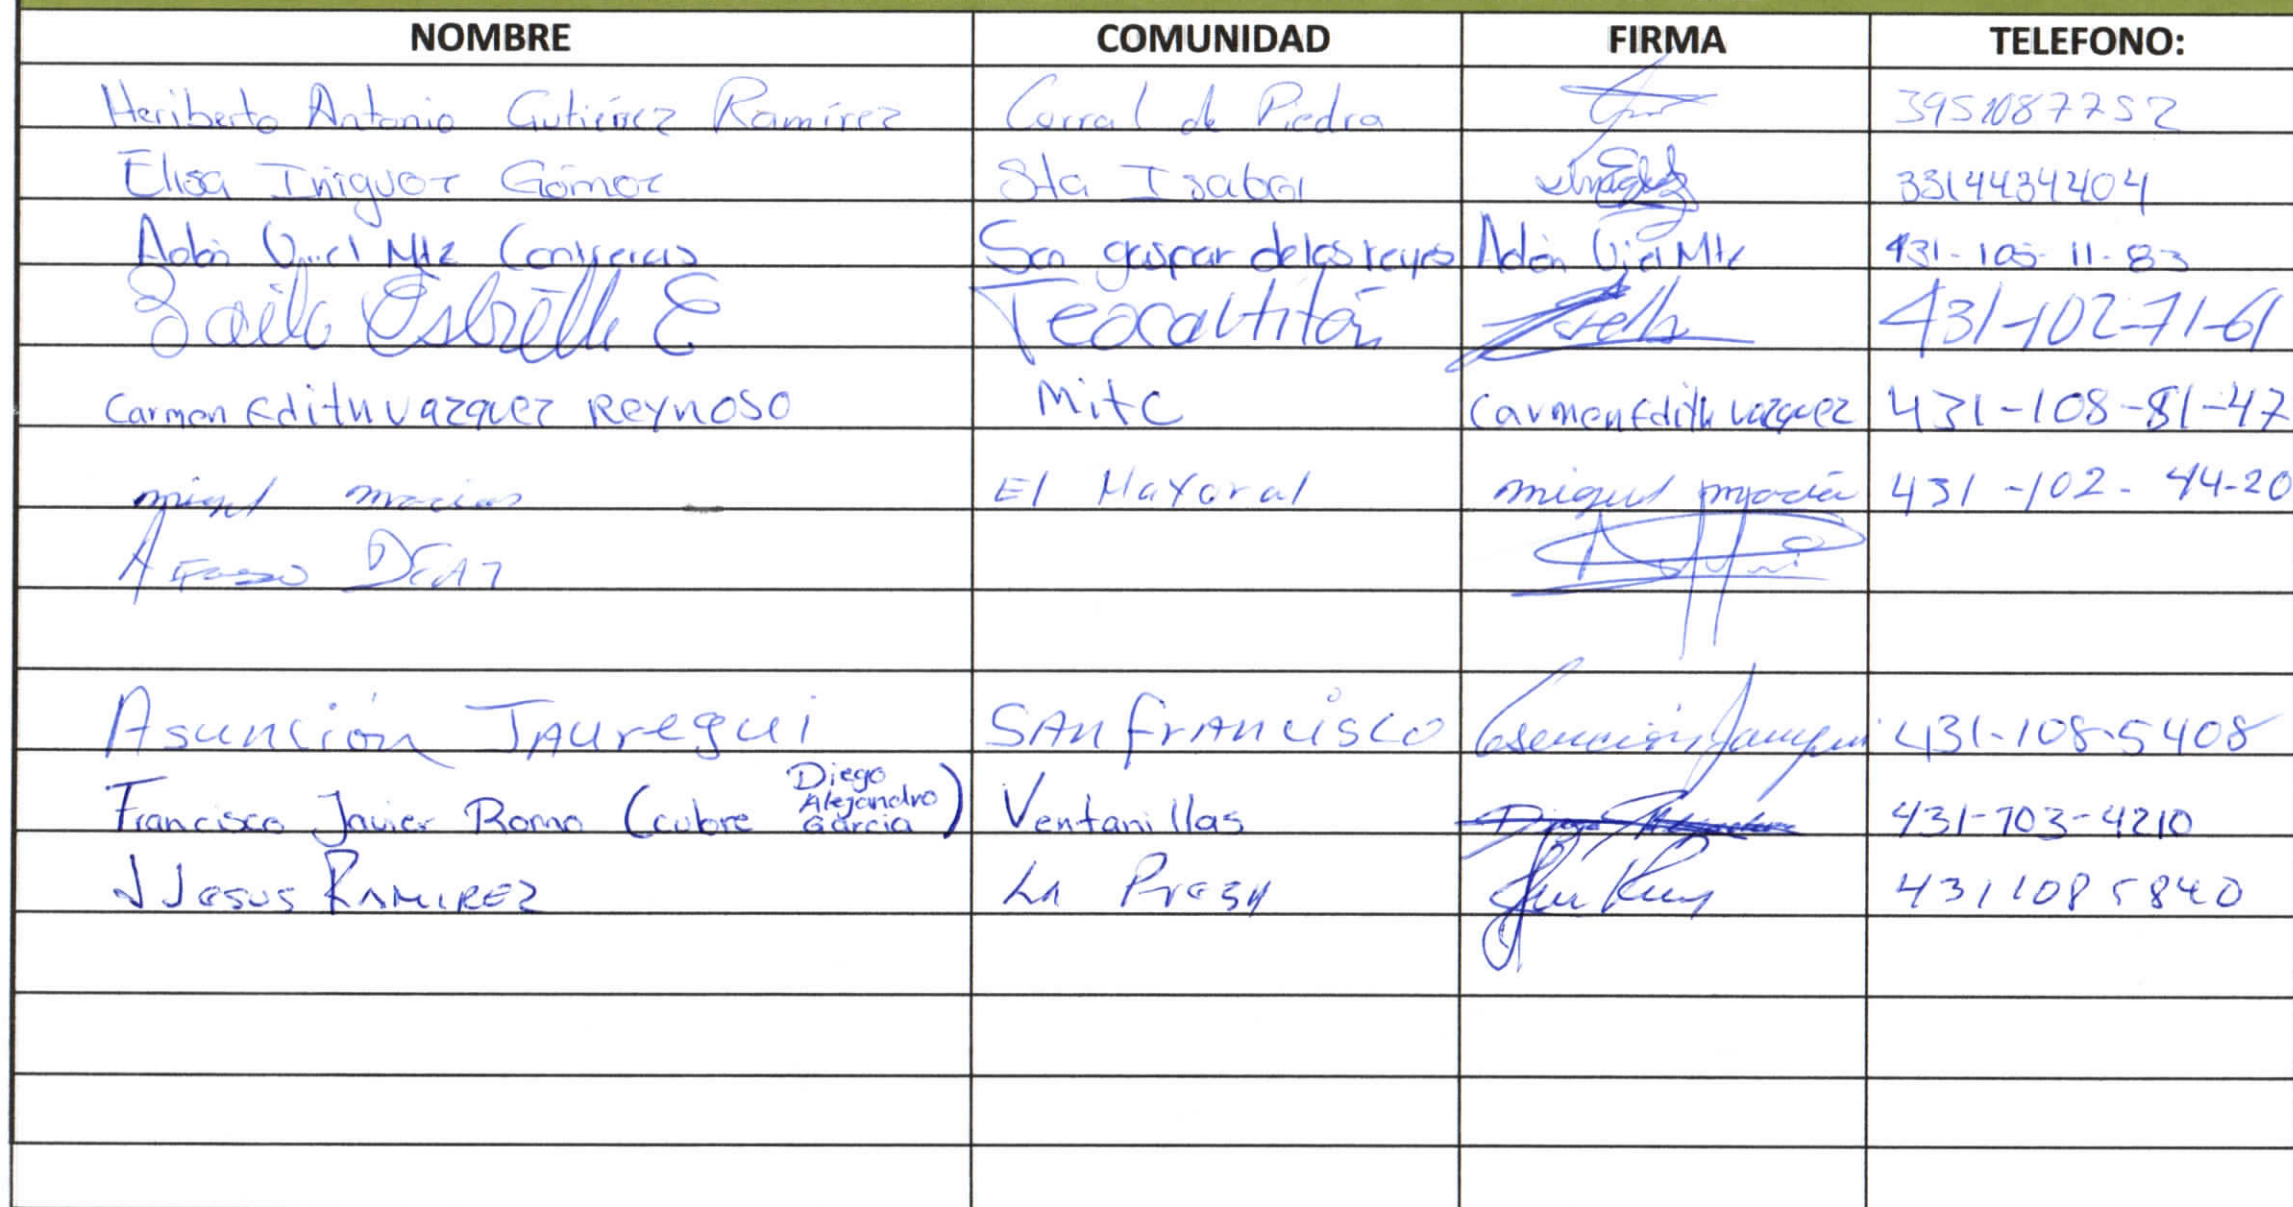 NOMBRE COMUNIDAD FIRMA TELEFONO:
Heriberto Antonio Gutiérrez Ramírez Corral de Piedra 3951087752
Elisa Iñiguez Gómez Sta Isabel 3314434404
Adán Uriel Mtz Contreras San gaspar de los reyes Adán Uriel Mtz 431-105-11-83
Estrella E Teocaltitán 431-102-71-61
Carmen Edith Vazquez Reynoso Mitc Carmen Edith Vazquez 431-108-81-47
miguel macias El Mayoral miguel macias 431-102-44-20
DIAZ
Asunción JAuregui SAn frAncisco 431-108-5408
Francisco Javier Romo (cubre Diego Alejandro Garcia) Ventanillas 431-703-4210
J Jesus RAMIREZ LA Presa 4311085840